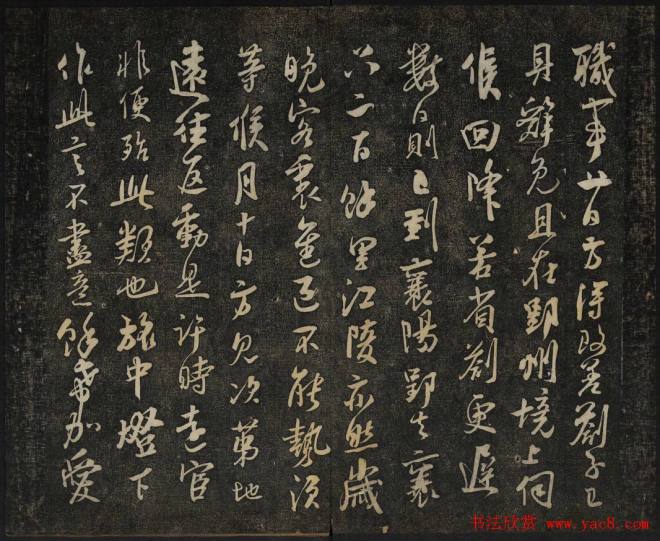 職事廿一日方得改差劄子已
具辭免且在郢州境上伺
候回降若省劄更遲
數日則已到襄陽郢去襄
只二百餘里江陵亦然歲
晚客裏不能須
等候月十日方見次第地
遠往返動是許時遠宦
非便殆此類也旅中燈下
作此言不盡意餘希加愛
书法欣赏 www.yac8.com